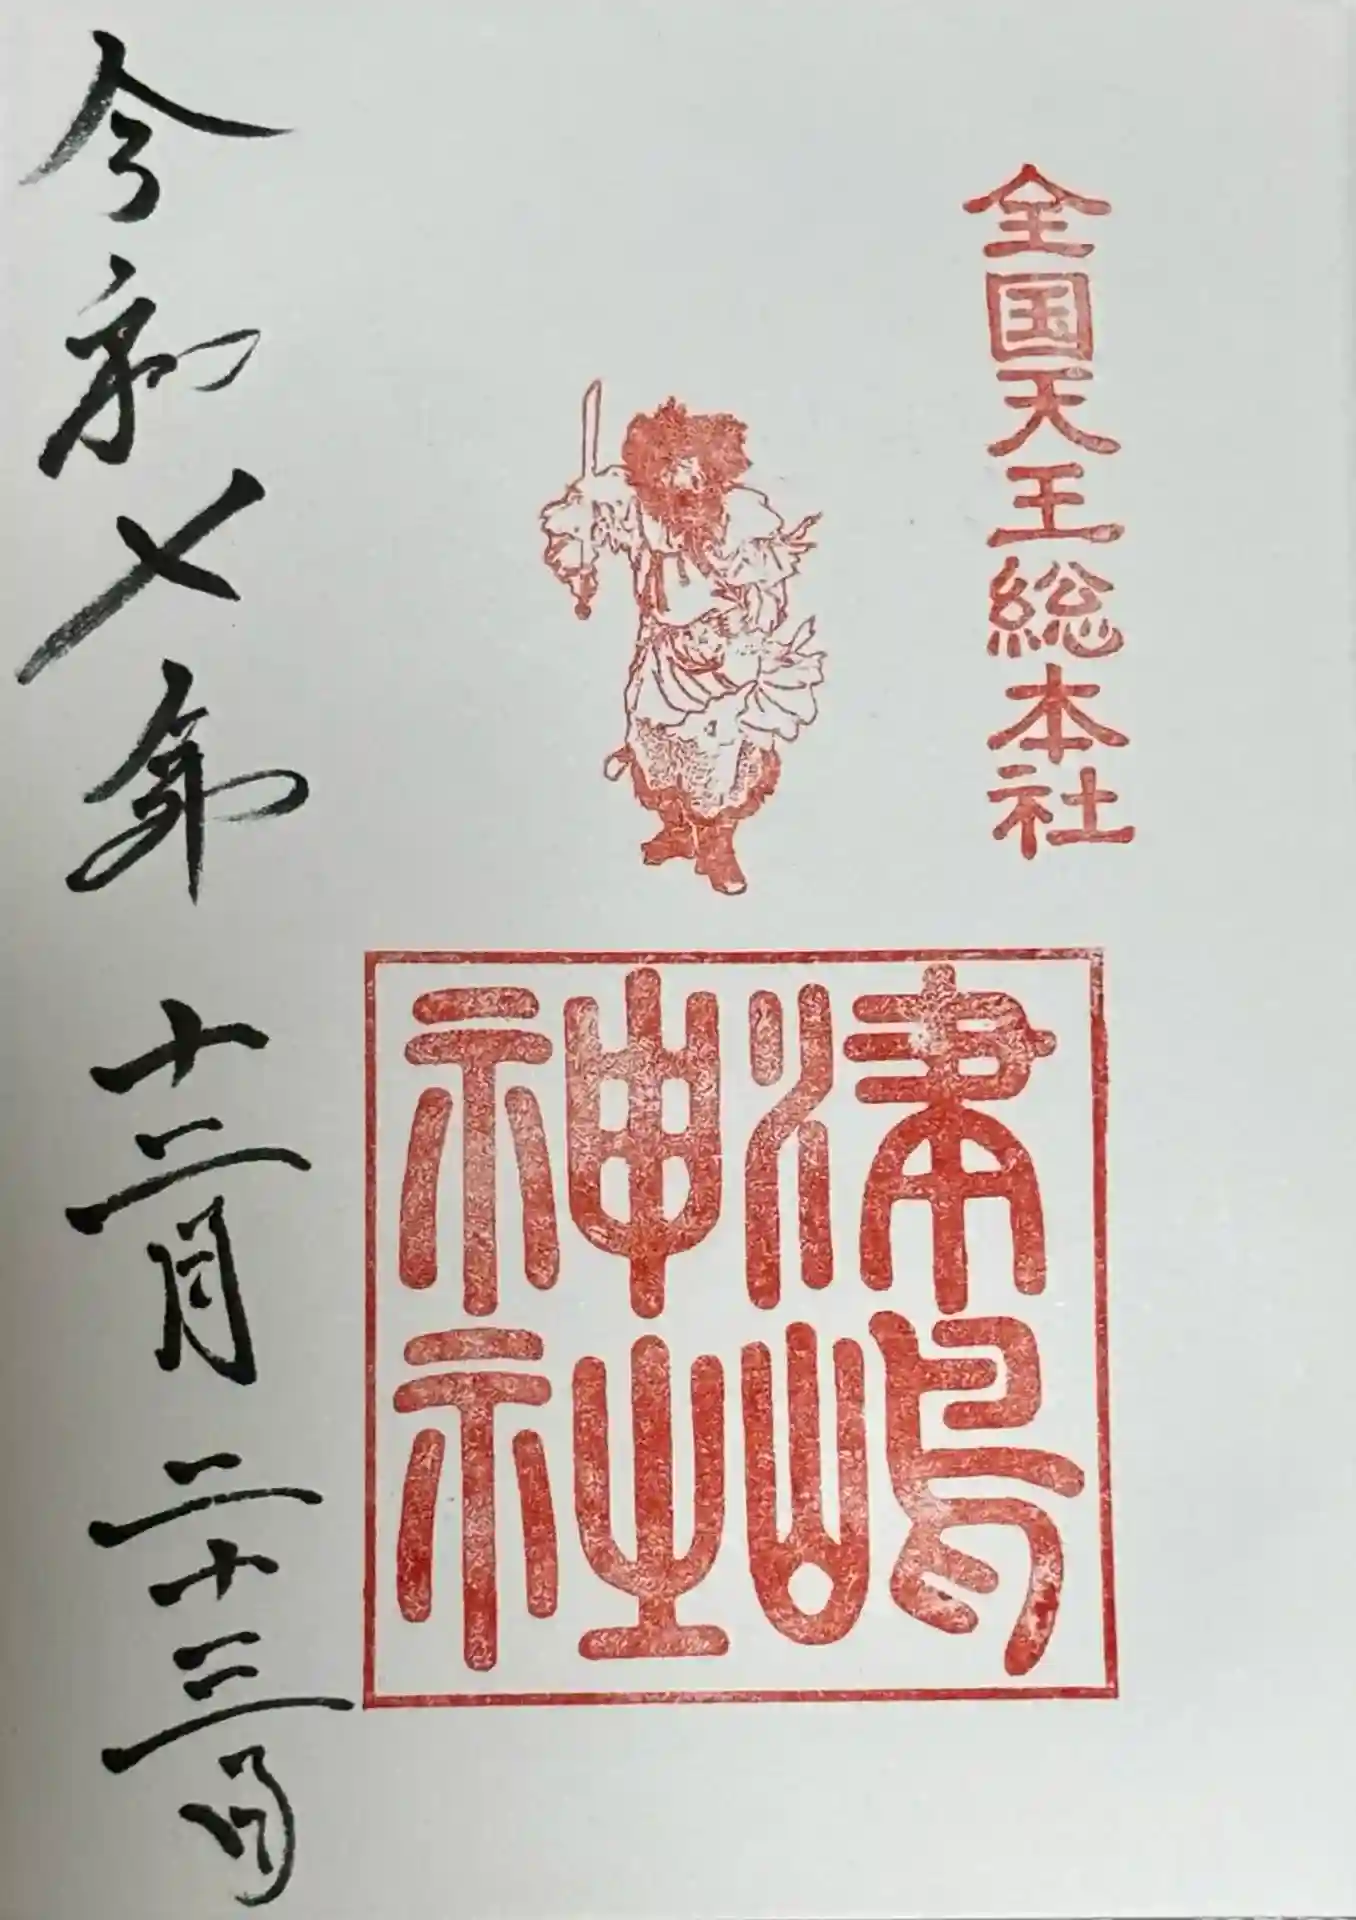 全国天王総本社
津嶋
神社
令和七年十二月二十三日